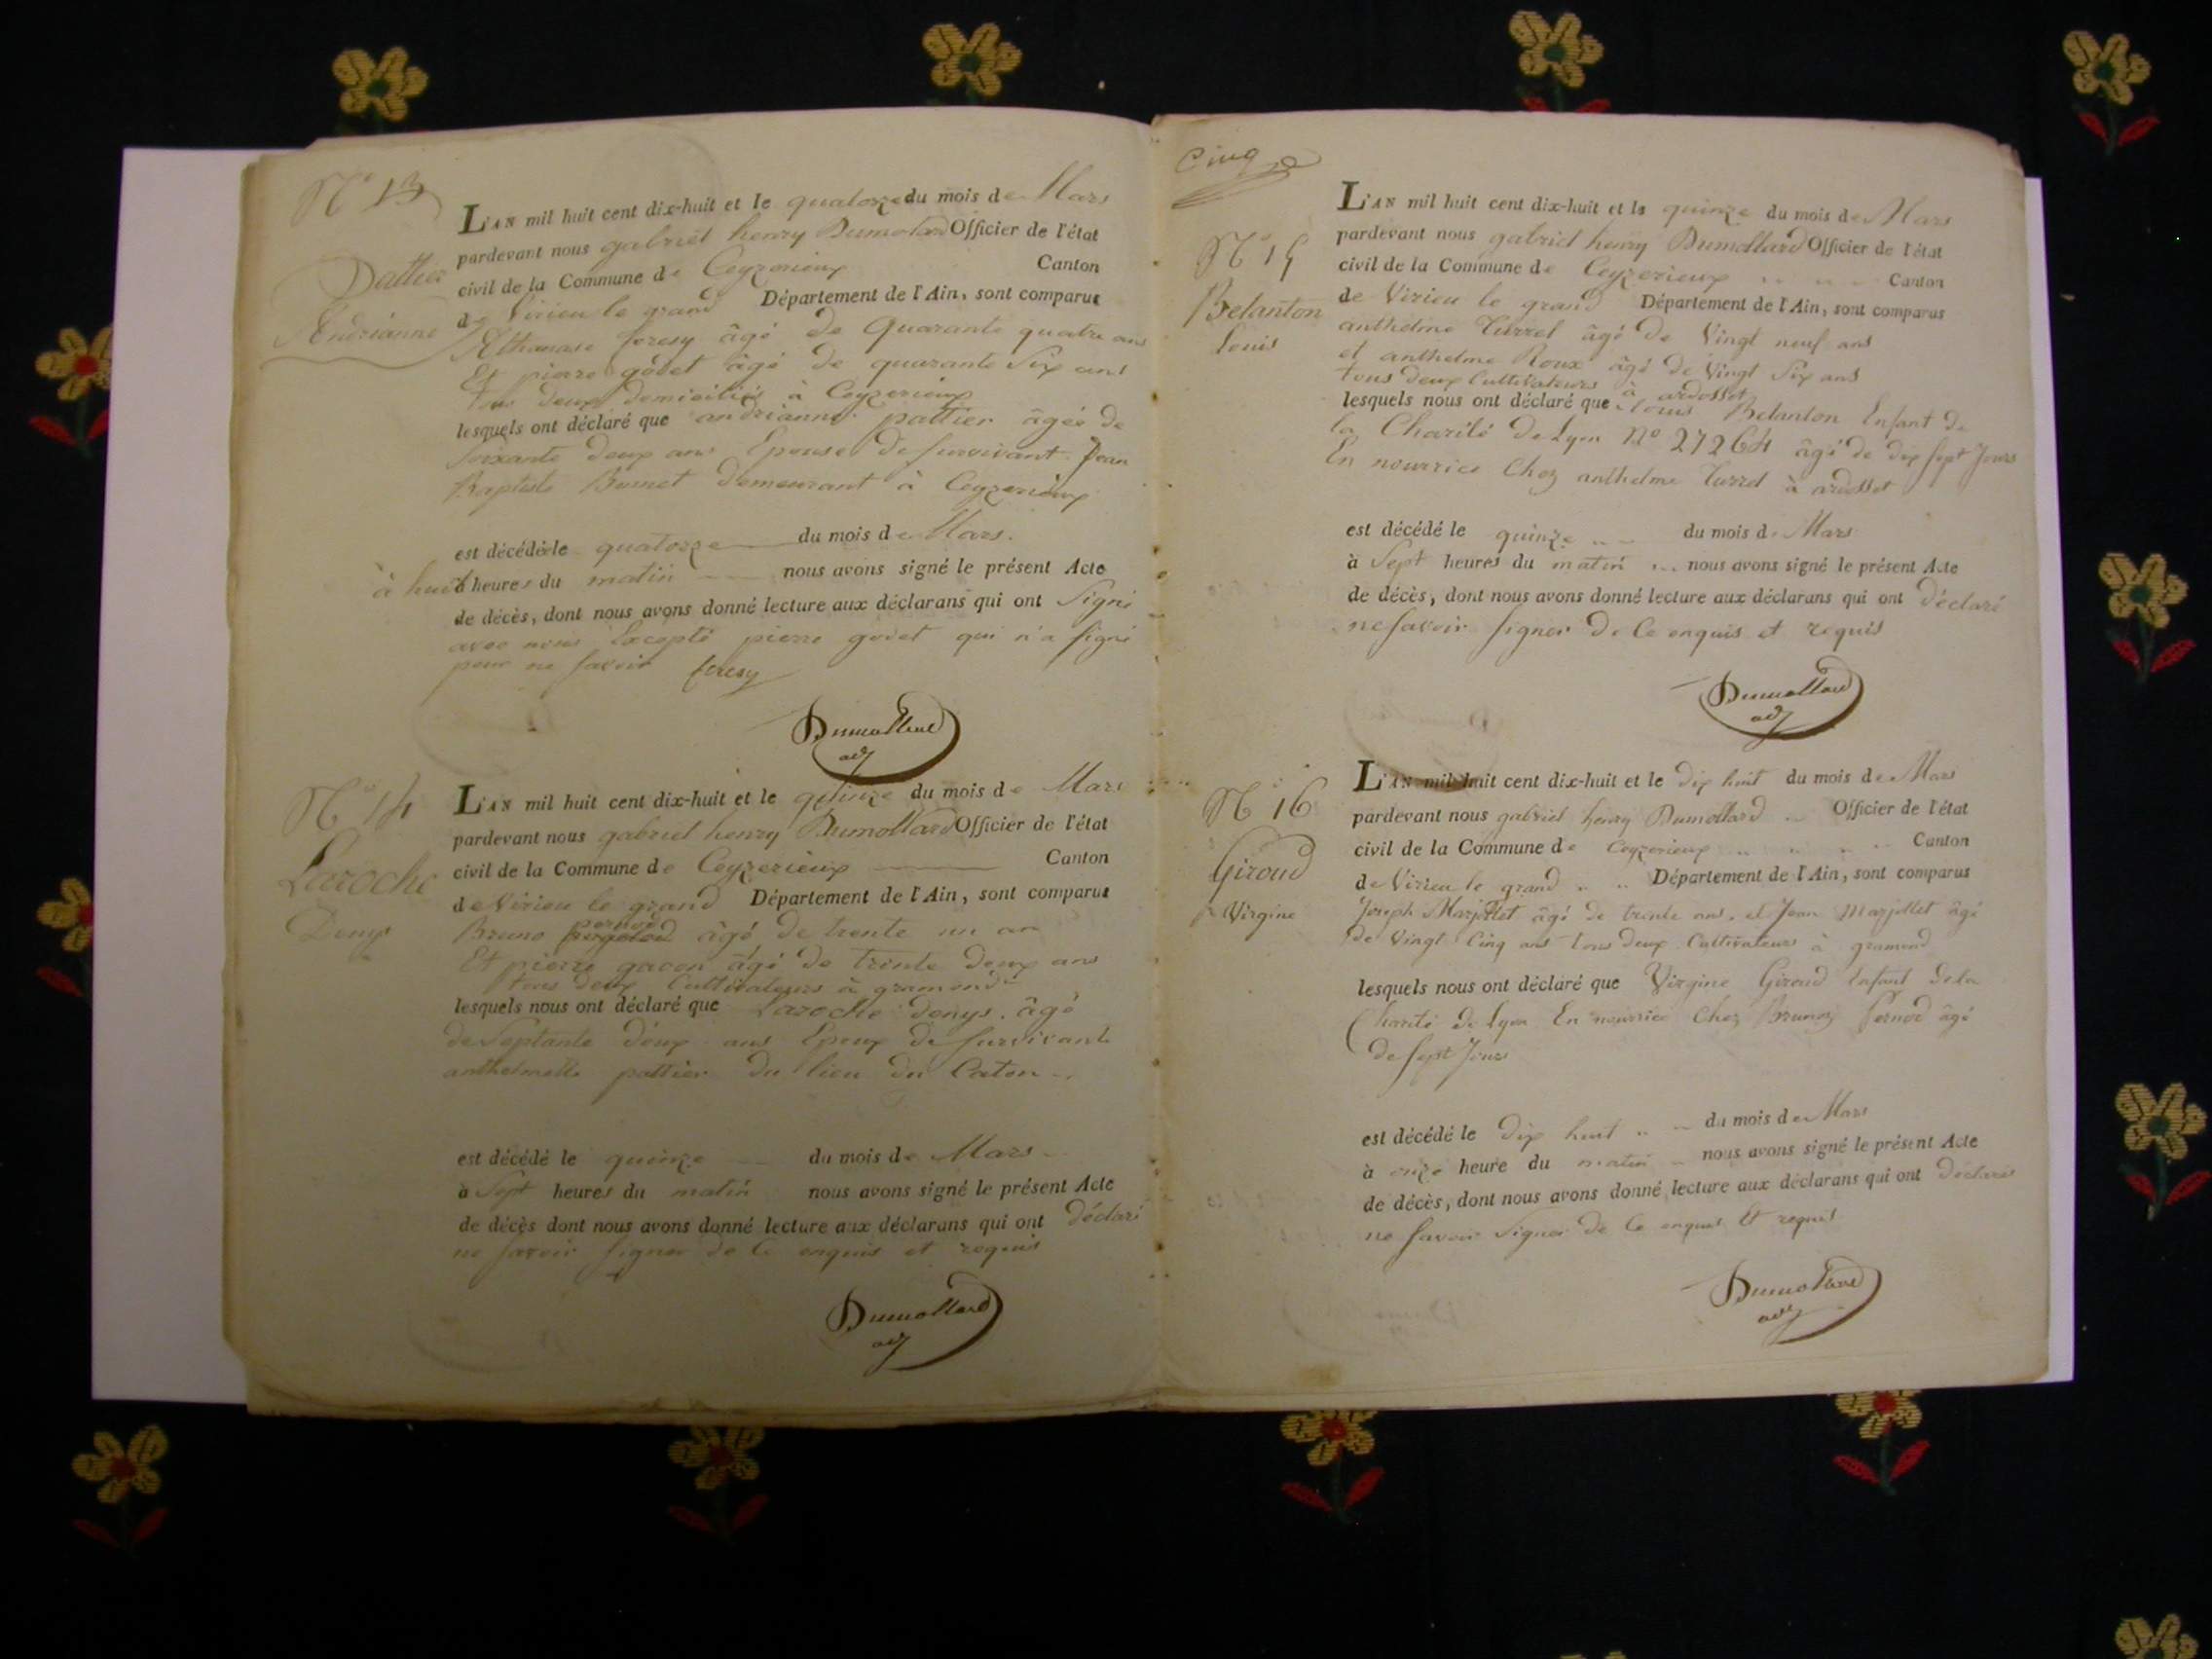 N° 13
Pattier
Andrianne
L'AN mil huit cent dix-huit et le quatorze du mois de Mars
pardevant nous gabriel henry Dumolard Officier de l'état
civil de la Commune de Ceyzerieux Canton
de Virieu le grand Département de l'Ain, sont comparus
Athanase feresy âgé de Quarante quatre ans
Et pierre godet âgé de quarante Six ans
tous deux domiciliés à Ceyzerieux
lesquels ont déclaré que andrianne pattier âgée de
Soixante deux ans Epouse de survivant Jean
Baptiste Burnet demeurant à Ceyzerieux
est décédée le quatorze du mois de Mars.
à huit heures du matin nous avons signé le présent Acte
de décès, dont nous avons donné lecture aux déclarans qui ont Signé
avec nous Excepté pierre godet qui n'a signé
pour ne savoir feresy
Dumollard
adj
N° 14
Laroche
Denys
L'AN mil huit cent dix-huit et le quinze du mois de Mars
pardevant nous gabriel henry Dumollard Officier de l'état
civil de la Commune de Ceyzerieux Canton
de Virieu le grand Département de l'Ain, sont comparus
pernod
Bruno âgé de trente un an
Et pierre gacon âgé de trente deux ans
tous deux Cultivateurs à gramond
lesquels nous ont déclaré que Laroche Denys. âgé
de Septante deux ans Epoux de survivante
anthelmette pattier du lieu du Caton
est décédé le quinze du mois de Mars
à Sept heures du matin nous avons signé le présent Acte
de décès dont nous avons donné lecture aux déclarans qui ont déclaré
ne savoir signer de ce enquis et requis
Dumollard
adj
Cinq
N° 15
Belanton
Louis
L'AN mil huit cent dix-huit et le quinze du mois de Mars
pardevant nous gabriel henry Dumollard Officier de l'état
civil de la Commune de Ceyzerieux Canton
de Virieu le grand Département de l'Ain, sont comparus
anthelme Turrel âgé de Vingt neuf ans
et anthelme Roux âgé de Vingt Six ans
tous deux Cultivateurs à ardosset
lesquels nous ont déclaré que Louis Belanton Enfant de
la Charité de Lyon N° 27264 âgé de dix sept Jours
En nourrice Chez anthelme Turrel à ardosset
est décédé le quinze du mois de Mars
à Sept heures du matin nous avons signé le présent Acte
de décès, dont nous avons donné lecture aux déclarans qui ont déclaré
ne savoir signer de Ce enquis et requis
Dumollard
adj
N° 16
Giroud
Virgine
L'AN mil huit cent dix-huit et le dix huit du mois de Mars
pardevant nous gabriel henry Dumollard Officier de l'état
civil de la Commune de Ceyzerieux Canton
de Virieu le grand Département de l'Ain, sont comparus
Joseph Marjollet âgé de trente ans. et Jean Marjollet âgé
de Vingt Cinq ans tous deux Cultivateurs à gramond
lesquels nous ont déclaré que Virgine Giroud Enfant de la
Charité de Lyon En nourrice Chez Brunoz Pernod âgé
de sept Jours
est décédé le dix huit du mois de Mars
à onze heure du matin nous avons signé le présent Acte
de décès, dont nous avons donné lecture aux déclarans qui ont déclaré
ne savoir signer de Ce enquis Et requis
Dumollard
adj